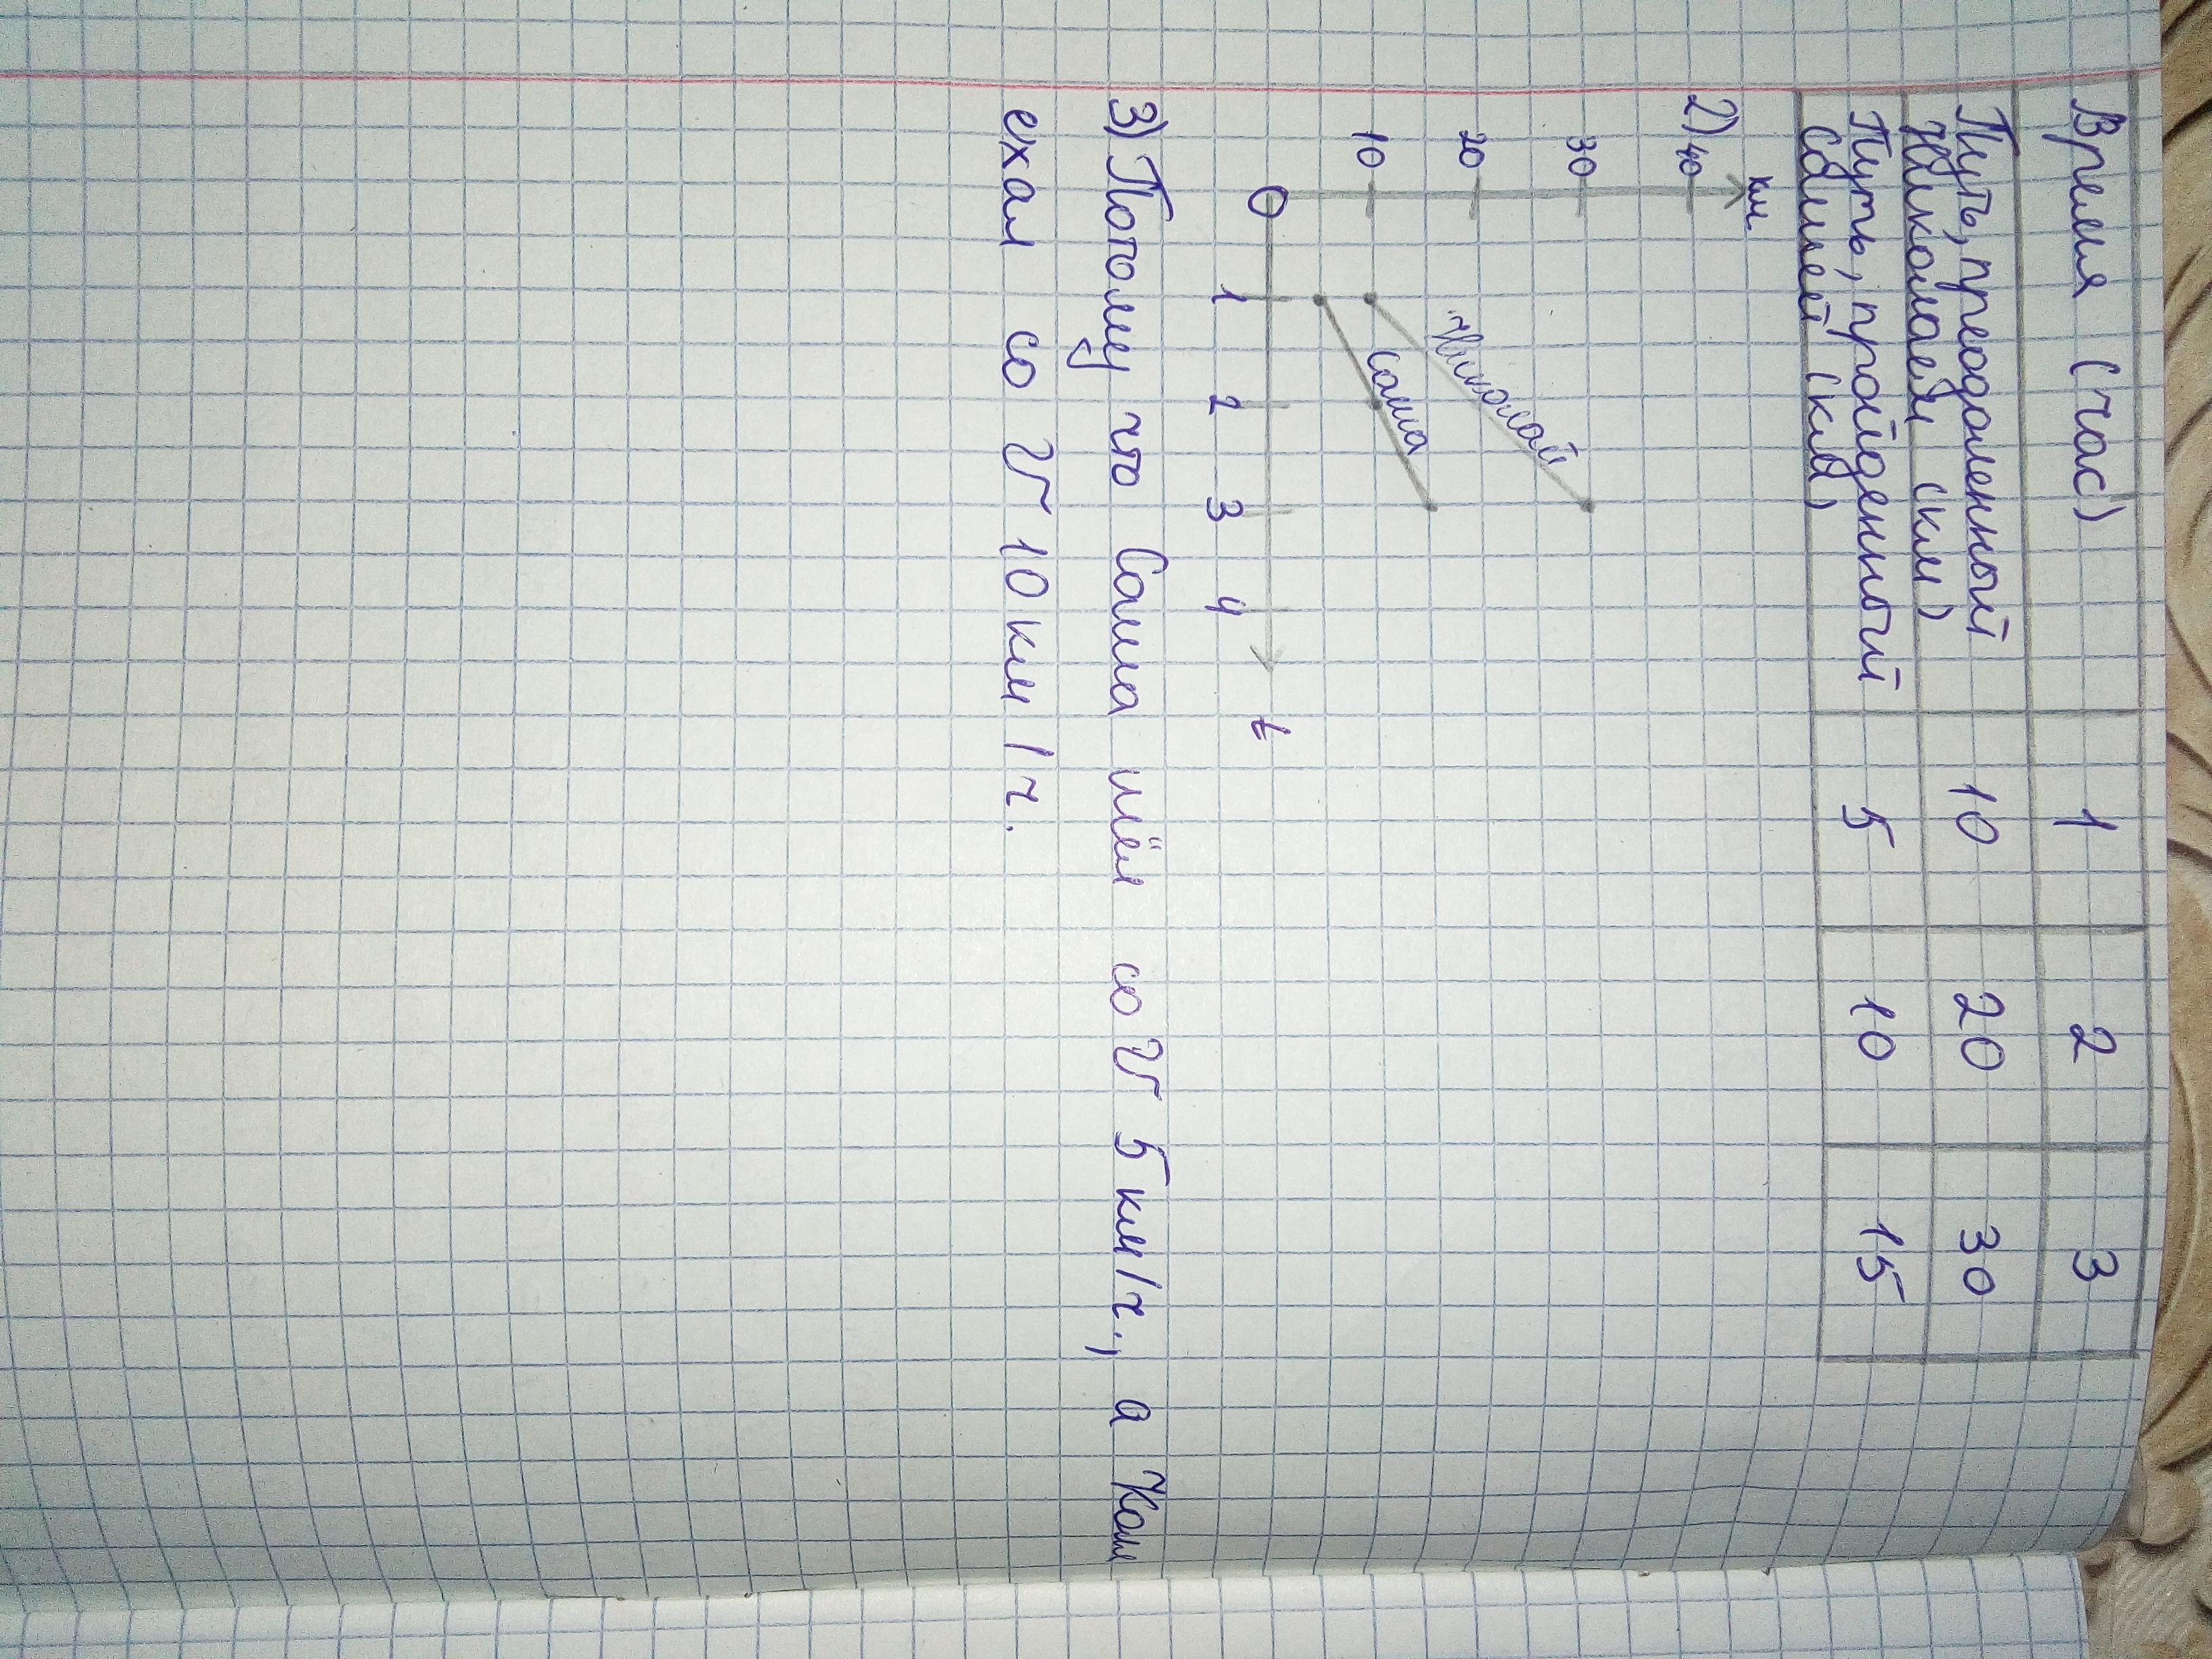 Время (час) 1 2 3
Путь, преодоленный
Николаем (км) 10 20 30
Путь, пройденный
Сашей (км) 5 10 15
км.
2) 40
30
20
10
Николай
Саша
0
1 2 3 4 t
3) Потому что Саша шёл со V 5 км/ч., а Коля
ехал со V 10 км/ч.